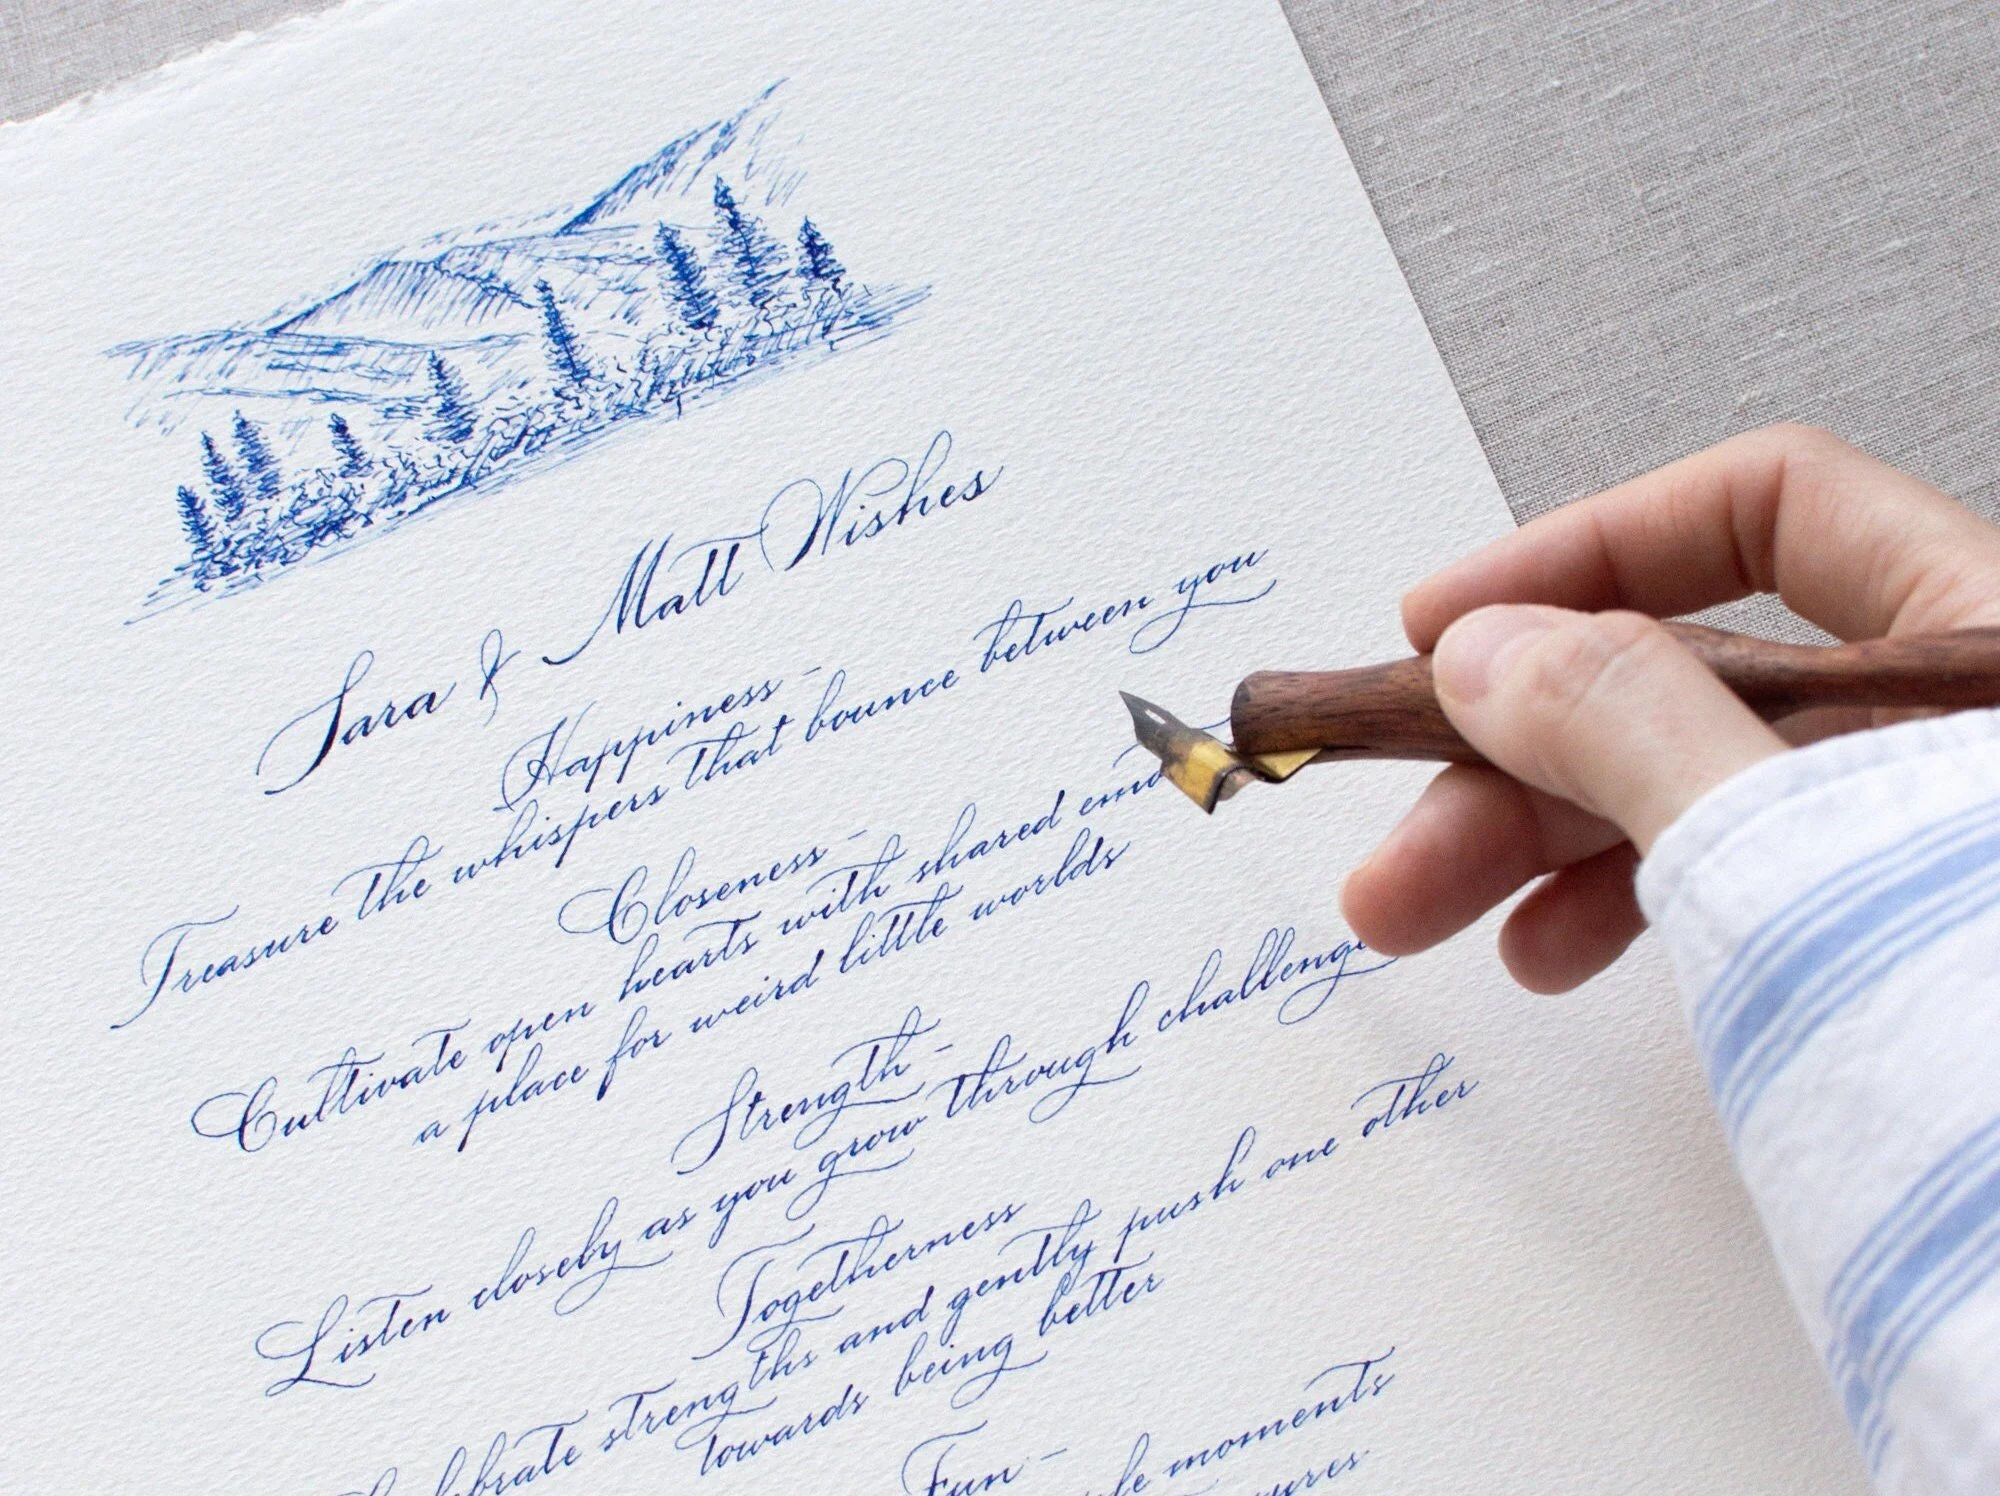 Sara & Matt Wishes
Happiness -
Treasure the whispers that bounce between you
Closeness -
Cultivate open hearts with shared
a place for weird little worlds
Strength -
Listen closeby as you grow through
Togetherness
strengths and gently push one other
towards being better
Fun -
moments